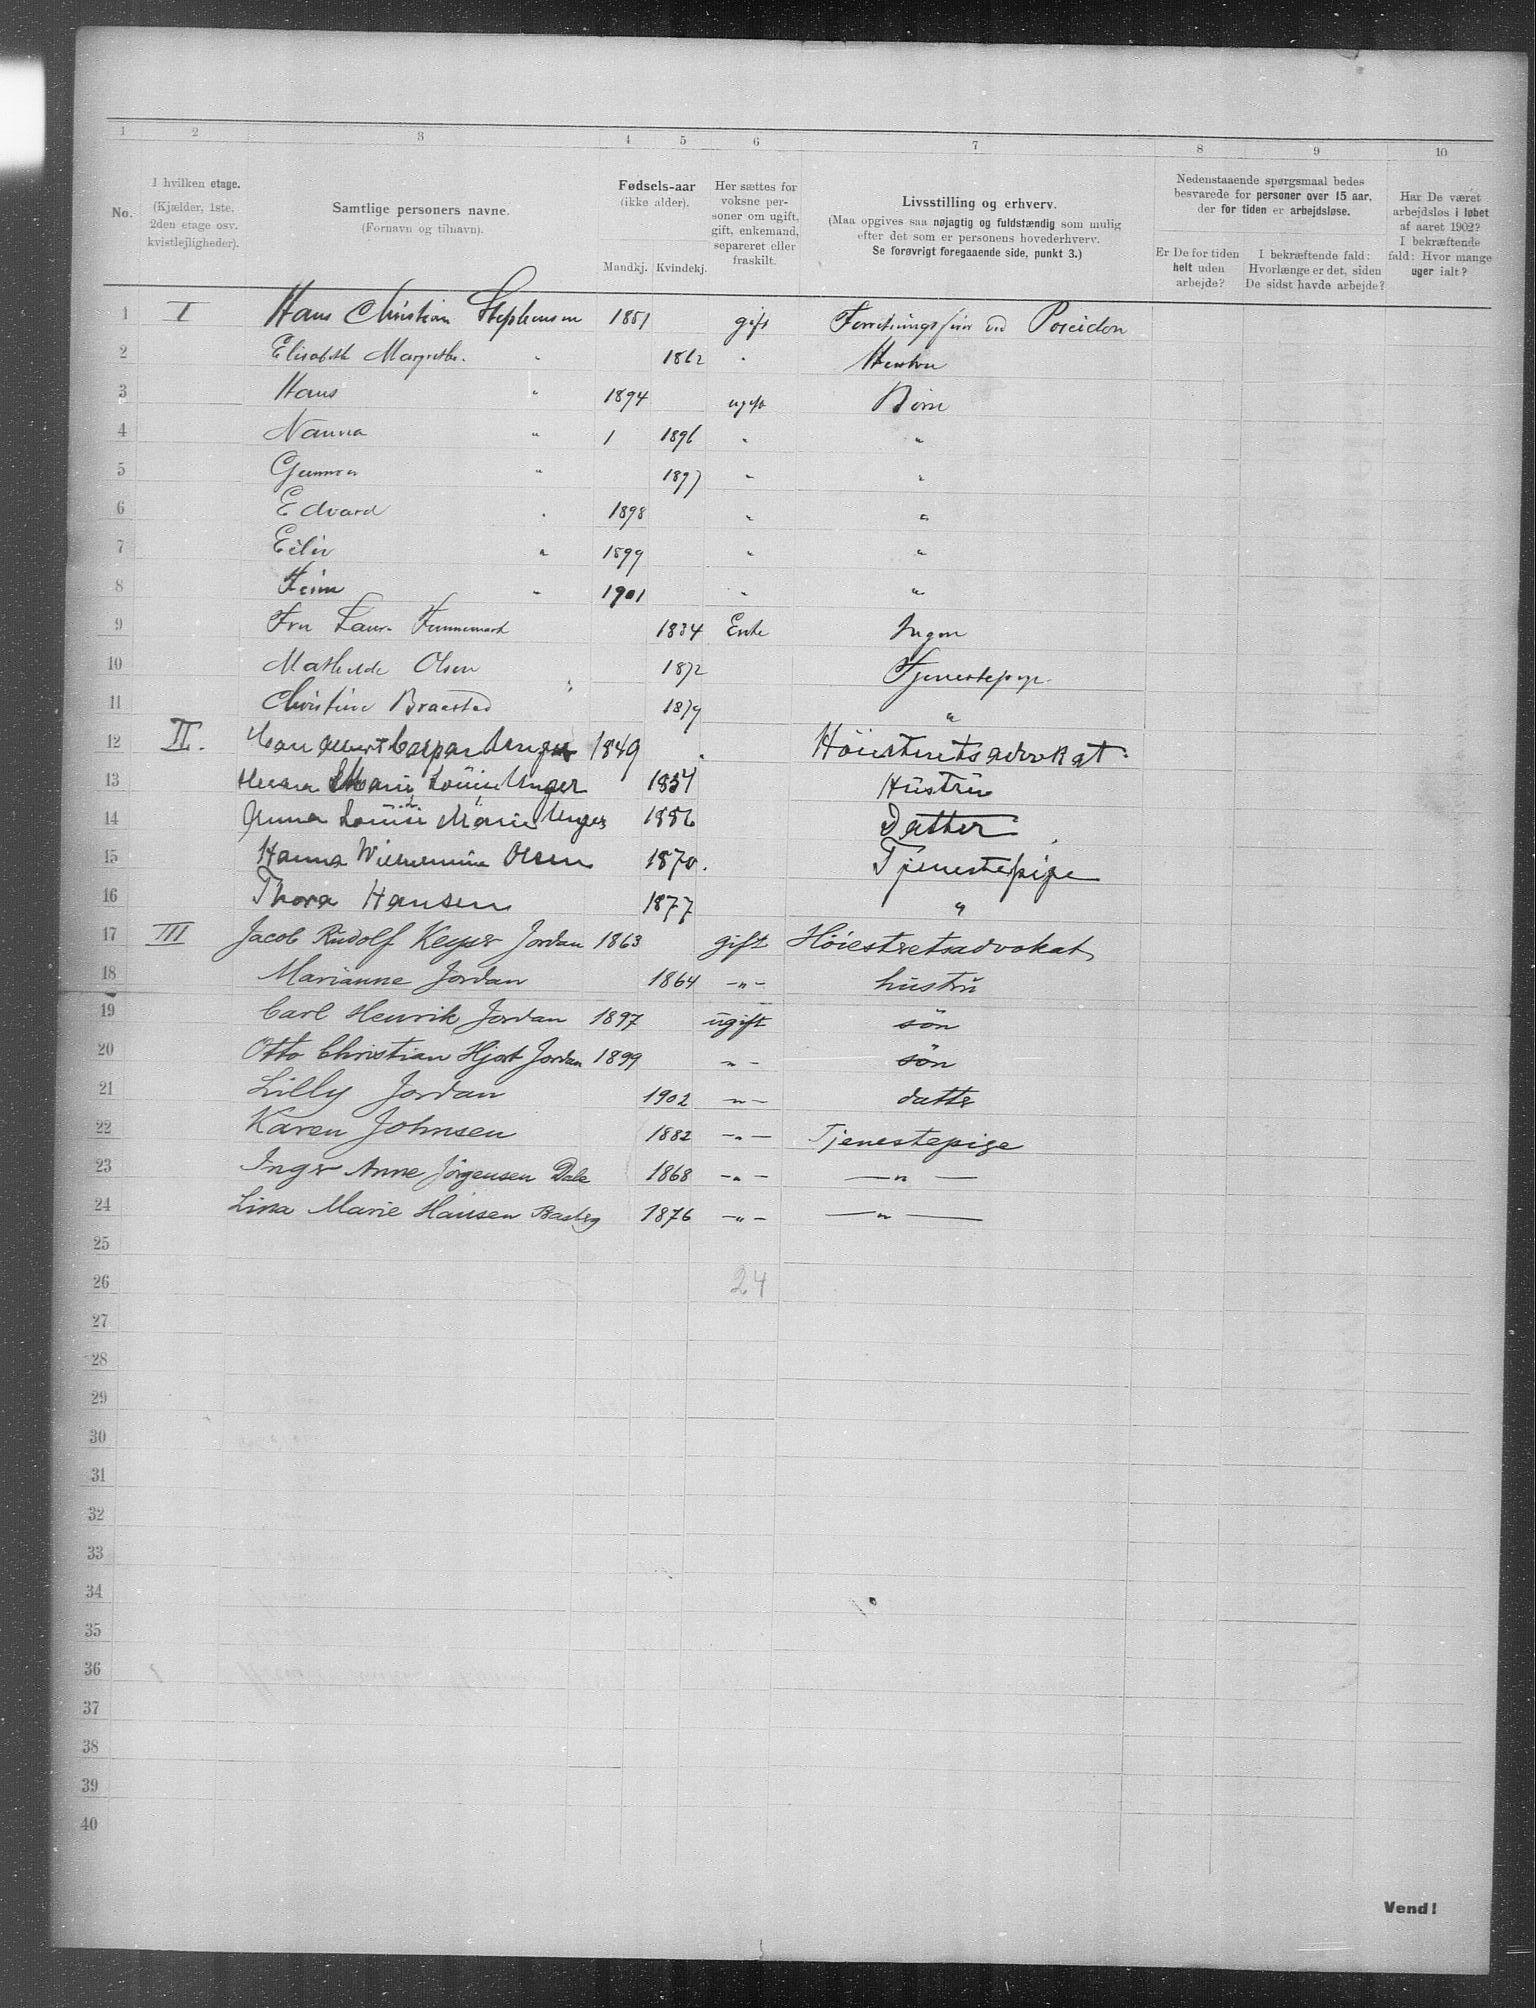 1 2 3 4 5 6 7 8 9 10
No.
I hvilken etage.
(Kjælder, 1ste, 2den etage osv. kvistlejligheder).
Samtlige personers navne.
(Fornavn og tilnavn).
Fødsels-aar
(ikke alder).
Mandkj. Kvindekj.
Her sættes for voksne personer om ugift, gift, enkemand, separeret eller fraskilt.
Livsstilling og erhverv.
(Maa opgives saa nøjagtig og fuldstændig som mulig efter det som er personens hovederhverv.
Se forøvrigt foregaaende side, punkt 3.)
Nedenstaaende spørgsmaal bedes besvarede for personer over 15 aar, der for tiden er arbejdsløse.
Er De for tiden helt uden arbejde?
I bekræftende fald: Hvorlænge er det, siden De sidst havde arbejde?
Har De været arbejdsløs i løbet af aaret 1902? I bekræftende fald: Hvor mange uger ialt?
1 I Hans Christian Stephensen 1851 gift Poseidon
2 Elisabeth Margrethe " 1862 " Hustru
3 Hans " 1894 ugift Børn
4 Nanna " 1 1896 " "
5 " 1897 " "
6 Edvard " 1898 " "
7 Eiliv " 1899 " "
8 " 1901 " "
9 Fru 1834 Enke Ingen
10 Mathilde Olsen 1872 Tjenestepige
11 Christine Braastad 1879 "
12 II. Albert Caspar Unger 1849 Höiesteretsadvokat
13 Marie Louise Unger 1857 Hustru
14 Anna Louise Marie Unger 1886 Datter
15 Hanna Wilhelmine Olsen 1870. Tjenestepige
16 Thora Hansen 1877 "
17 III Jacob Rudolf Keyser Jordan 1863 gift Höiesteretsadvokat
18 Marianne Jordan 1864 -"- hustru
19 Carl Henrik Jordan 1897 ugift sön
20 Otto Christian Hjort Jordan 1899 -"- sön
21 Lilly Jordan 1902 -"- datter
22 Karen Johnsen 1882 -"- Tjenestepige
23 Inger Anne Jörgensen Dale 1868 -"- -"-
24 Lina Marie Hansen 1876 -"- -"-
25
26 24
27
28
29
30
31
32
33
34
35
36
37
38
39
40
Vend!